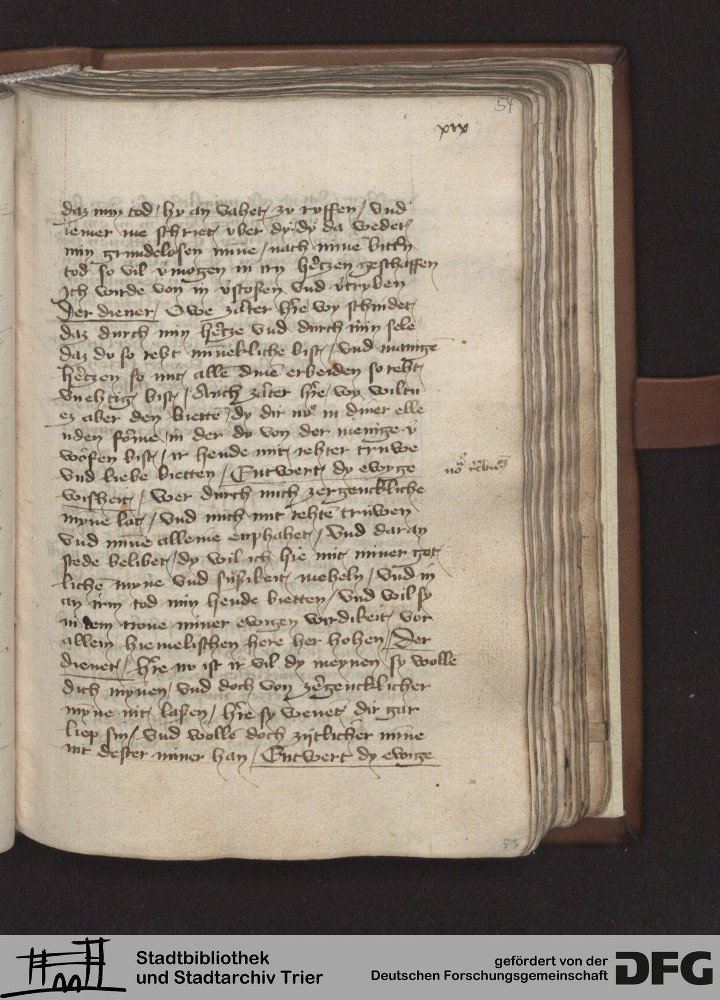 54
xix
daz min tod / hy an vahet / zu ruffen / vnd
iemer me schriet vber dy / dy da weder
min grundelosen mīne / nach mine bittn̄
tod so vil v̓mogen in irn hertzen geschaffen
Ich wirde von in v̓stoßen vnd v̓triben
Der diener / Owe zarter hr̄e wy schindet
daz durch min hertze vnd durch min sele
daz du so reht mīneklliche bist / vnd manige
hertzen so mit alle dine erbeiden so reht
vnehtig bist / Auch zarter hr̄e wy wiltu
ez aber den bietten / dy dir in diner elle
nden forme / in der dy von der menige v̓
wofen bist / ir hende mit rehter truwe
vnd liebe bietten / Entwert dy ewige
wisheit / wer durch mich zergenckliche
myne lat / vnd mich mit rehte truwen
vnd mīne alleine enphahet / vnd daran
stede belibet / dy wil ich hie mit miner got
liche myne vnd sußikeit meheln / vnd in
an irm tod min hende bietten / vnd wil sy
in dem trone miner ewigen wirdikeit / vor
allem hiemelischen here her hohen / Der
diener / hr̄e nv ist ir vil dy meynen sy wolle
dich mynen / vnd doch von zergencklicher
myne nit laßen / hr̄e sy wenet dir gar
liep sin / vnd wolle doch zijtlicher mīne
nit dester miner han / Entwert dy ewige
53
Stadtbibliothek
und Stadtarchiv Trier
gefördert von der
Deutschen Forschungsgemeinschaft
DFG